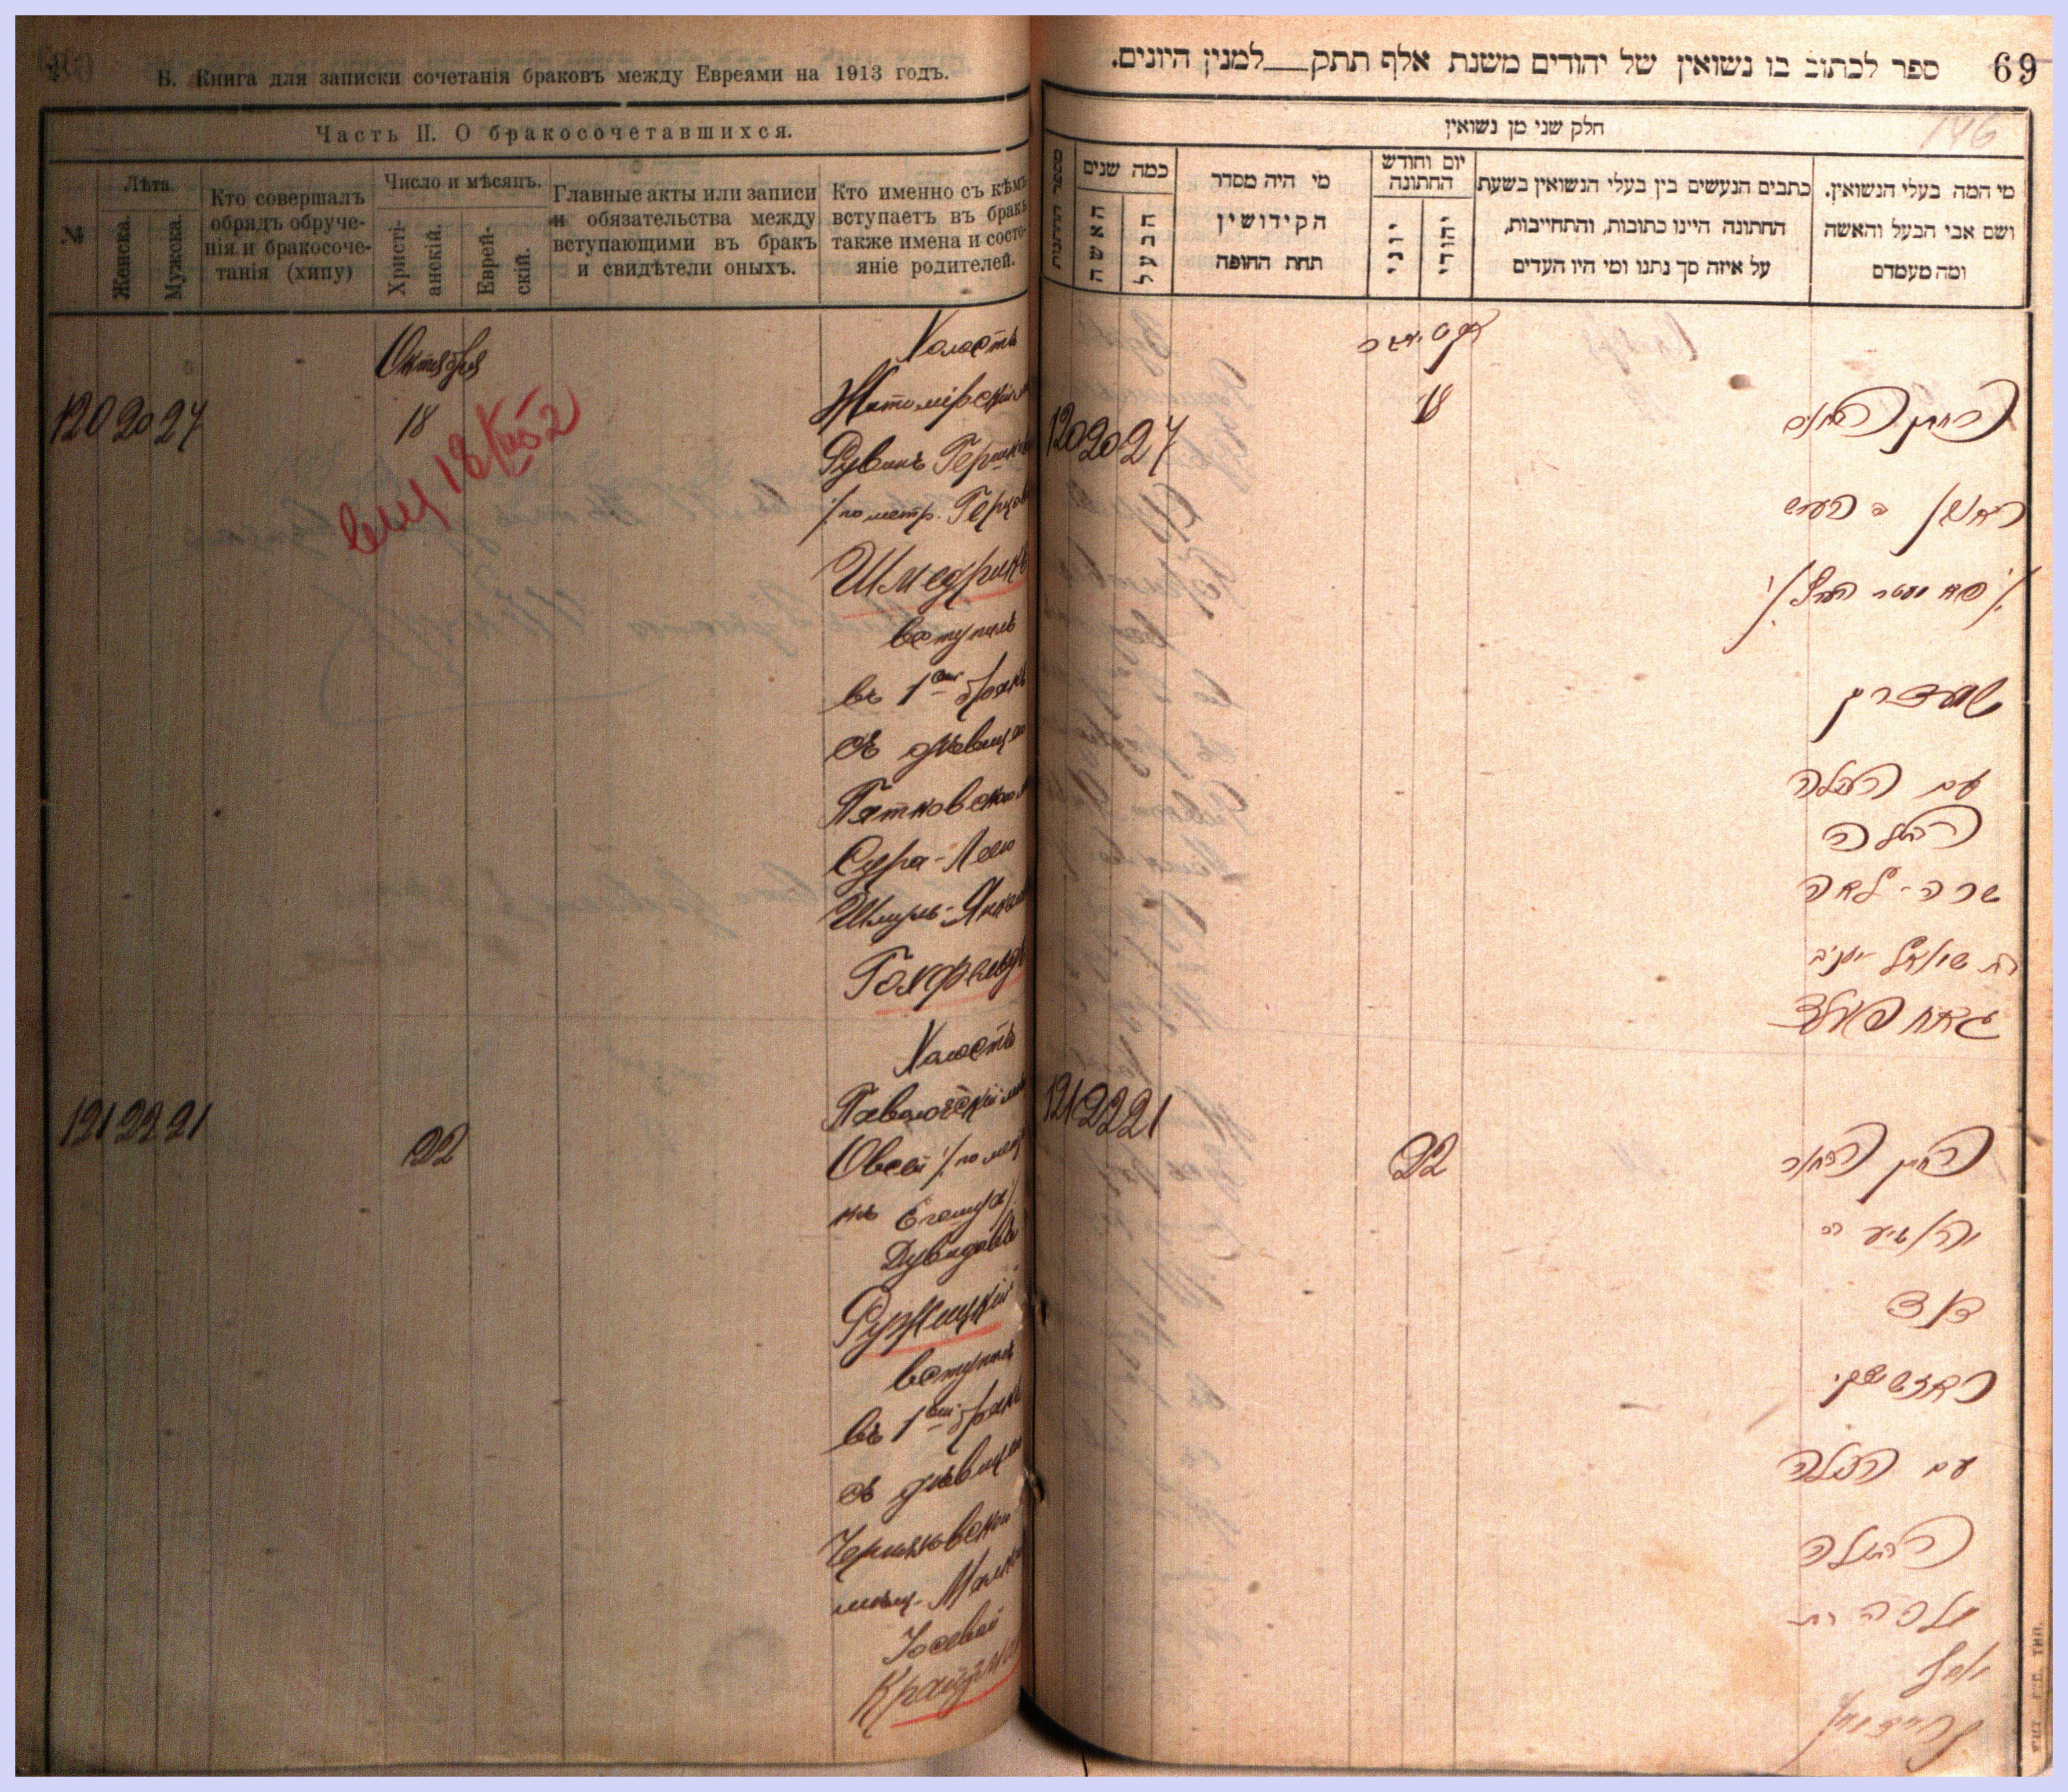 Б. Книга для записки сочетанія браковъ между Евреями на 1913 годъ.
Часть II. О бракосочетавшихся.
№
Лѣта.
Женска.
Мужска.
Кто совершалъ
обрядъ обруче-
нія и бракосоче-
танія (хипу)
Число и мѣсяцъ.
Христі-
анскій.
Еврей-
скій.
Главные акты или записи
и обязательства между
вступающими въ бракъ
и свидѣтели оныхъ.
Кто именно съ кѣмъ
вступаетъ въ бракъ
также имена и состо-
яніе родителей.
Октября
120 20 27
18
Холостъ
Житомірскій
Рувинъ Гершков
/: по метр. Герцов
Шмедрикъ
вступилъ
въ 1ый бракъ
съ дѣвицею
Пятковскою
Сура-Лею
Шмуль-Янк
Голфельдъ
121 22 21
22
Холостъ
Паволочскій
Овсей /: по мет
Дувидовъ
Ружицкій
вступилъ
въ 1ый бракъ
съ дѣвицею
Черняховскою
мѣщ. Малк
Іосевой
69
ספר לכתוב בו נשואין של יהודים משנת אלף תתק__למנין היונים.
חלק שני מן נשואין
146
מספר החתונות
כמה שנים
האשה
הבעל
מי היה מסדר
הקידושין
תחת החופה
יום וחודש
החתונה
יוני
יהודי
כתבים הנעשים בין בעלי הנשואין בשעת
החתונה היינו כתובות, והתחייבות,
על איזה סך נתנו ומי היו העדים
מי המה בעלי הנשואין.
ושם אבי הבעל והאשה
ומה מעמדם
120 20 27
18
החתן הבחור
ראובן ב הערש
שמעדריק
עם הכלה
הבתולה
שרה-לאה
בת שמואל יעקב
גאלפעלד
121 22 21
22
החתן הבחור
יהושיע בר
דוד
ראזשיצקי
עם הכלה
הבתולה
מלכה בת
יוסל